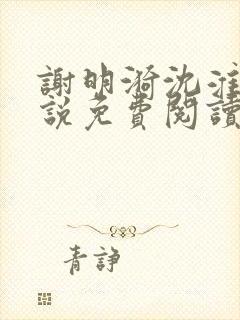 謝明漪沈淮
說免費閱讀
青諍